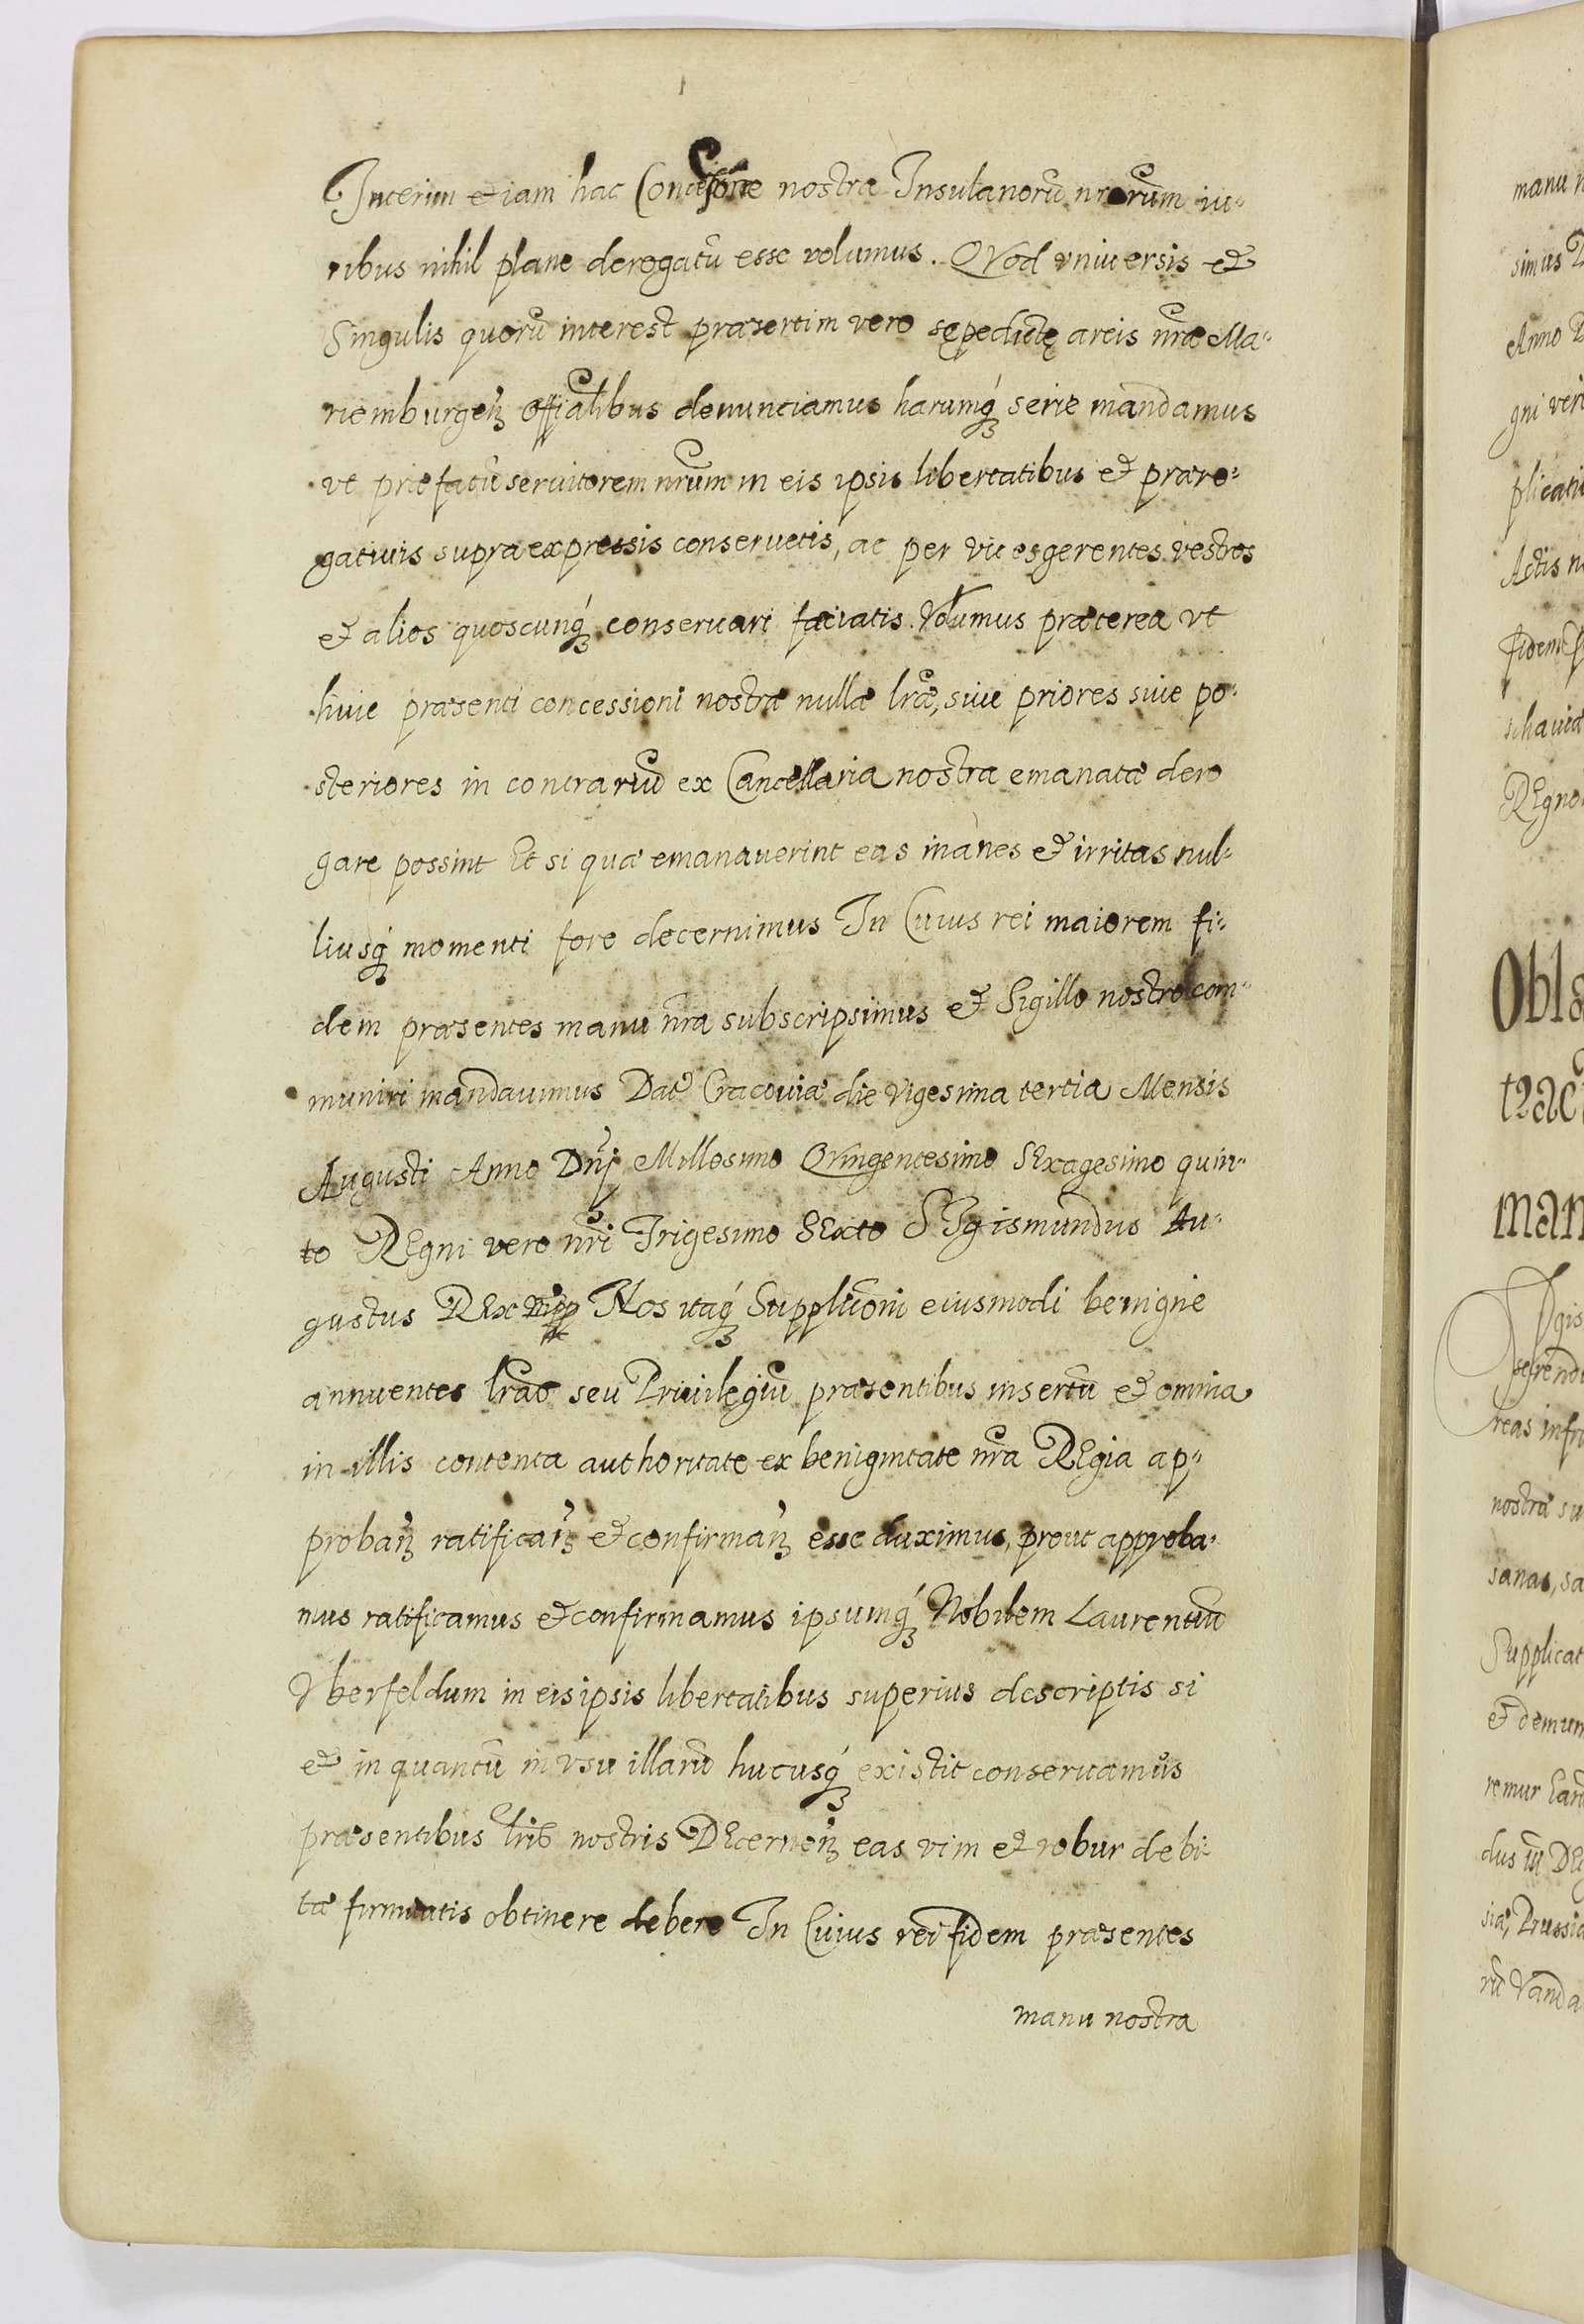 Interim etiam hac Conces̄sione nostra Insulanorū nr̄orum iu-
ribus nihil plane derogatū esse volumus. QVod vniuersis et
Singulis quorū interest præsertim vero sępedictę arcis nr̄æ Ma-
riemburgen̄ Offi̅alibus denunciamus harumq́ȝ serie mandamus
vt præfatū seruitorem nr̄um in eis ipsis libertatibus et præro-
gatiuis supra expressis conseruetis, ac per vicesgerentes vestros
et alios quoscunq́ȝ conseruari faciatis. Volumus præterea vt
huic præsenti concessioni nostræ nullæ lr̄æ, siue priores siue po-
steriores in contrariū ex Cancellaria nostra emanatæ dero
gare possint Et si quæ emanauerint eas inanes et irritas nul-
liusq́ȝ momenti fore decernimus In Cuius rei maiorem fi-
dem præsentes manu nr̄a subscripsimus et Sigillo nostro com-
muniri mandauimus Dat̄ Cracouiæ die vigesima tertia Mensis
Augusti Anno Dn̄j Millesimo QVingentesimo SExagesimo quin-
to REgni vero nr̄i Trigesimo SExto SIgismundus Au-
gustus REx Nos itaq́ȝ Supplicōni eiusmodi benigne
annuentes lr̄as seu Priuilegiū præsentibus insertū et omnia
in illis contenta authoritate ex benignitate nr̄a REgia ap-
proban̄ ratifican̄ et confirman̄ esse duximus, prout approba-
mus ratificamus et confirmamus ipsumq́ȝ Nobilem Laurentiū
Vberfeldum in eis ipsis libertatibus superius descriptis si
et in quantū in vsu illarū hucusq́ȝ existit conseruamus
præsentibus lr̄is nostris DEcernen̄ eas vim et robur debi-
tæ firmitatis obtinere debere In Cuius rei fidem præsentes
manu nostra
manu n
simus
Anno D
gni veri
plicati
Actis n
fidem
schauiæ
REgno
Obla
trac
man
reas infr
nostræ su
sanas, sa
Supplicat
et demum
remur Ean
dus in DEi
siæ, Prussiæ
rū Vanda